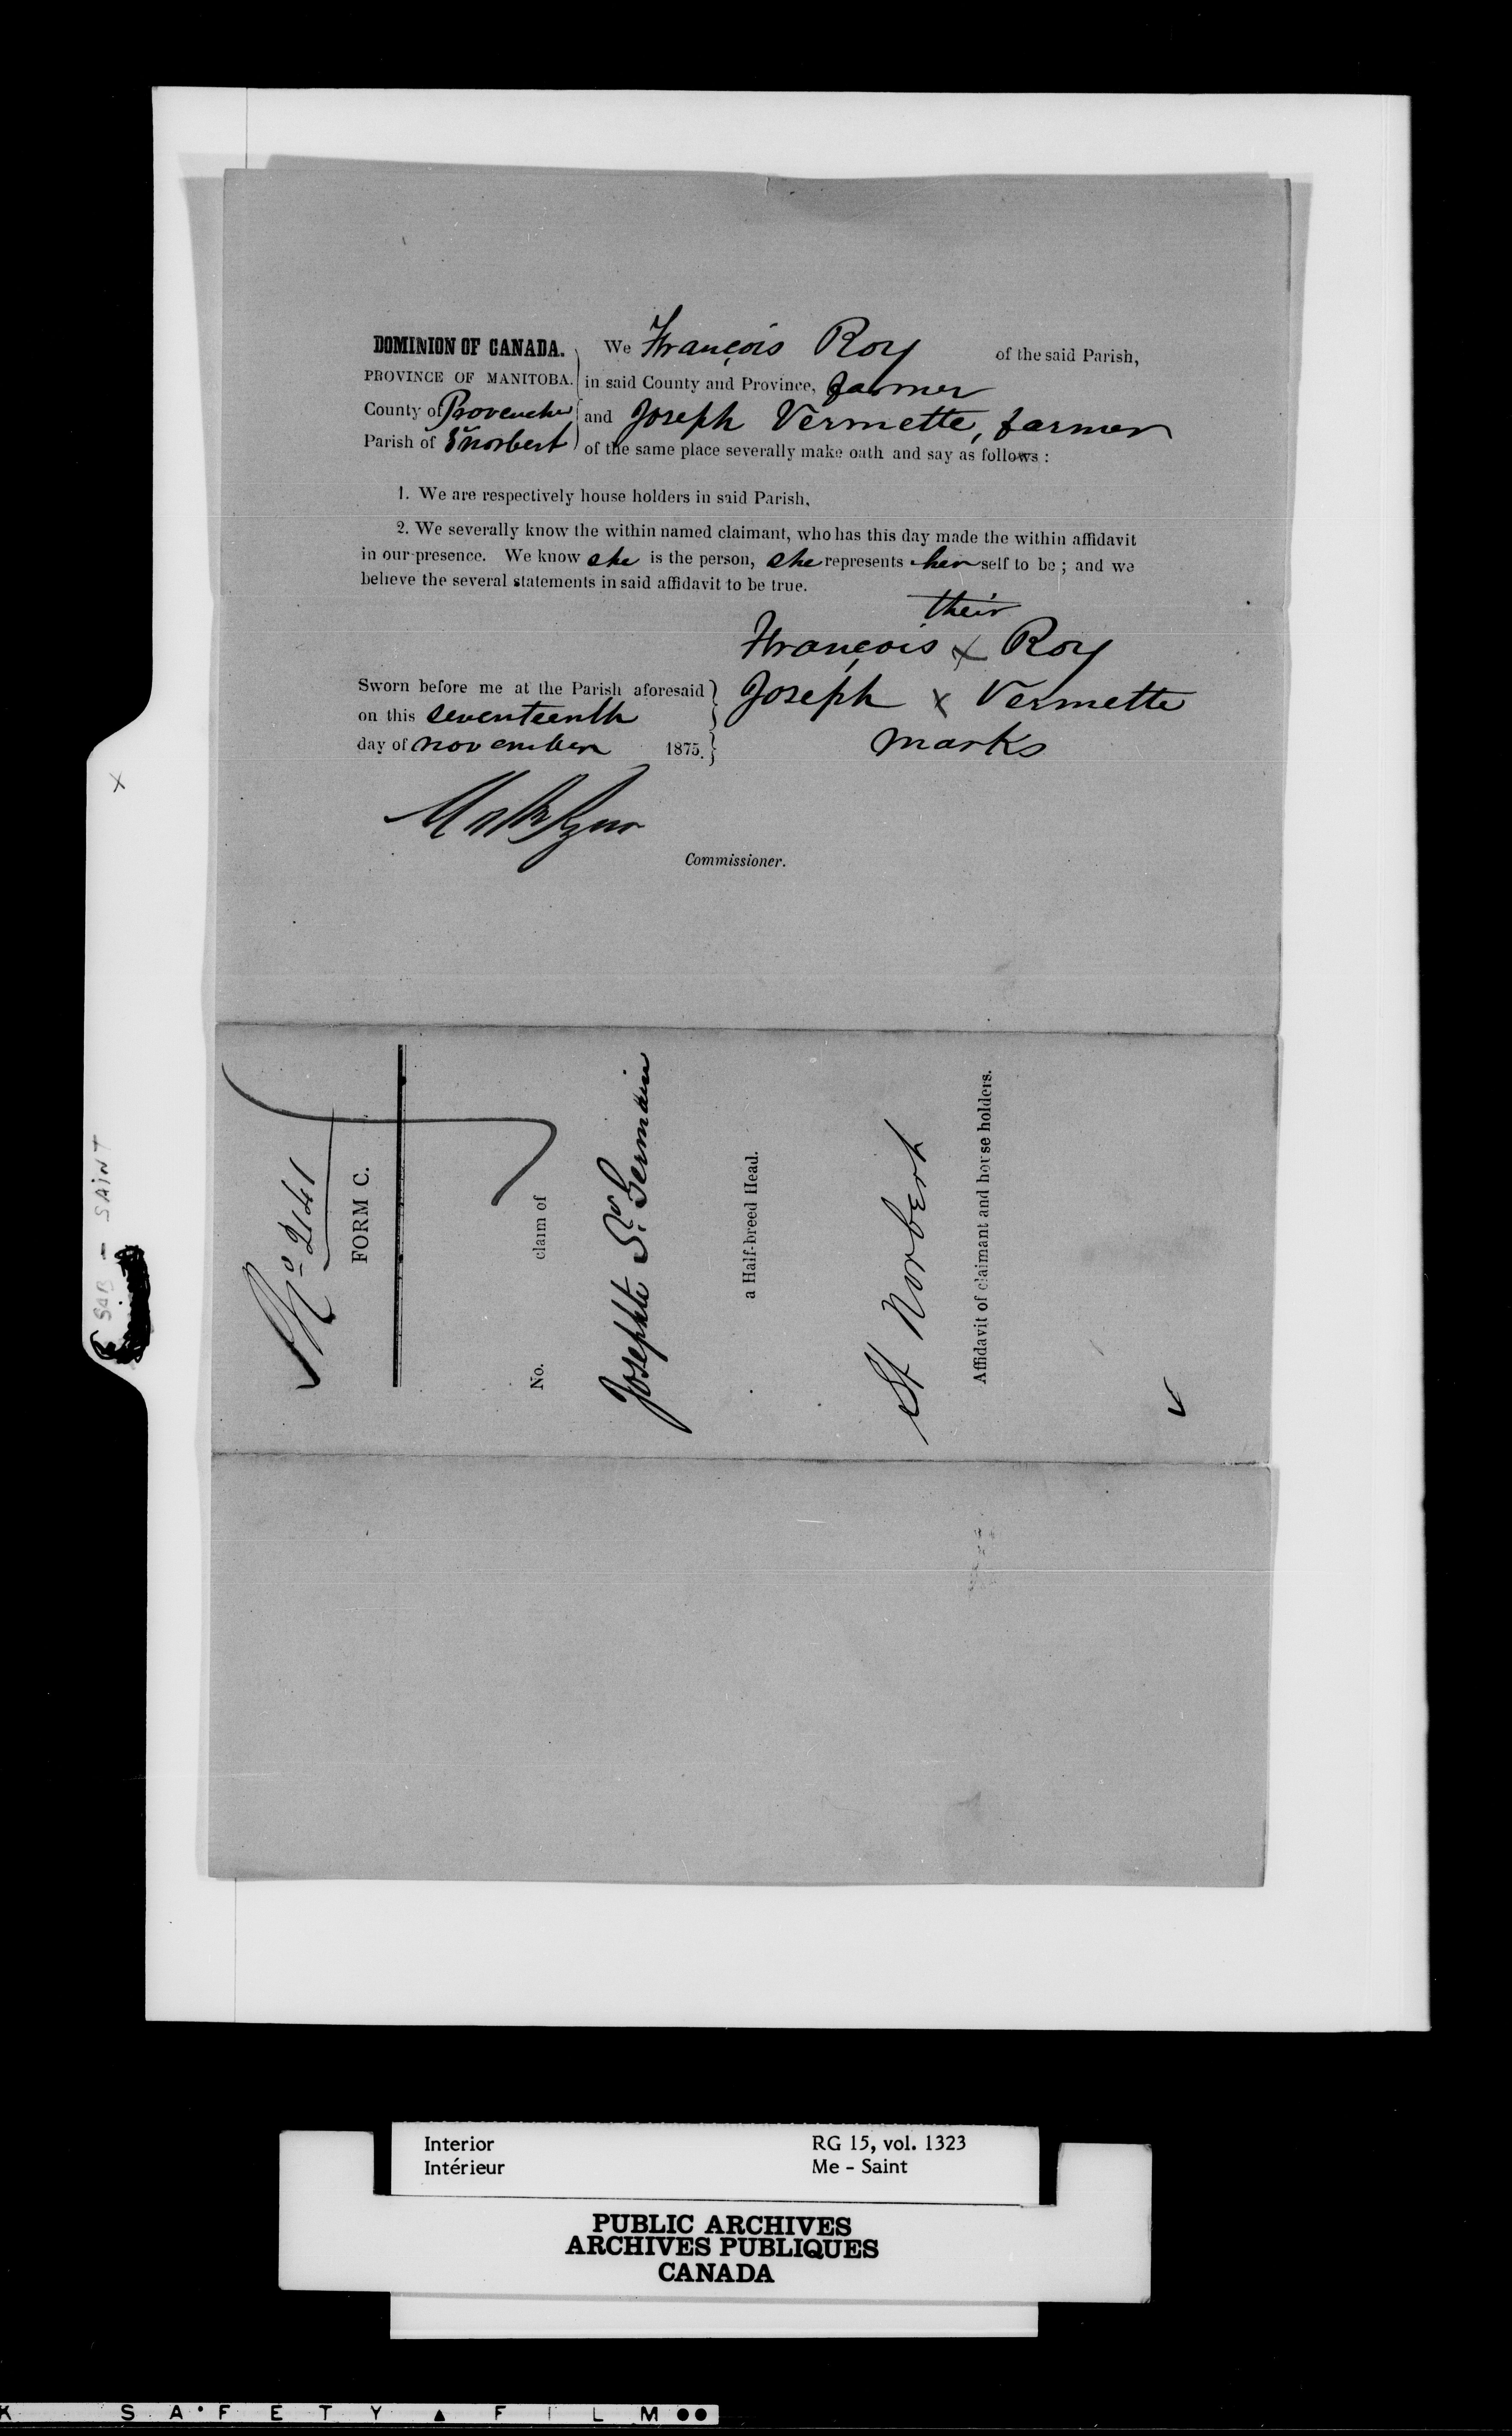 DOMINION OF CANADA.
PROVINCE OF MANITOBA.
County of Provencher
Parish of St Norbert
We François Roy of the said Parish,
in said County and Province, farmer
and Joseph Vermette, farmer
of the same place severally make oath and say as follows :
1. We are respectively house holders in said Parish,
2. We severally know the within named claimant, who has this day made the within affidavit
in our presence. We know she is the person, she represents herself to be ; and we
believe the several statements in said affidavit to be true.
their
François x Roy
Joseph x Vermette
marks
Sworn before me at the Parish aforesaid
on this seventeenth
day of november 1875.
Commissioner.
No 2141
FORM C.
No. claim of
Josephte St. Germain
a Half-breed Head.
St Norbert
Affidavit of claimant and house holders.
x
SAB - SAINT
Interior
Intérieur
RG 15, vol. 1323
Me - Saint
PUBLIC ARCHIVES
ARCHIVES PUBLIQUES
CANADA
K SAFETY FILM